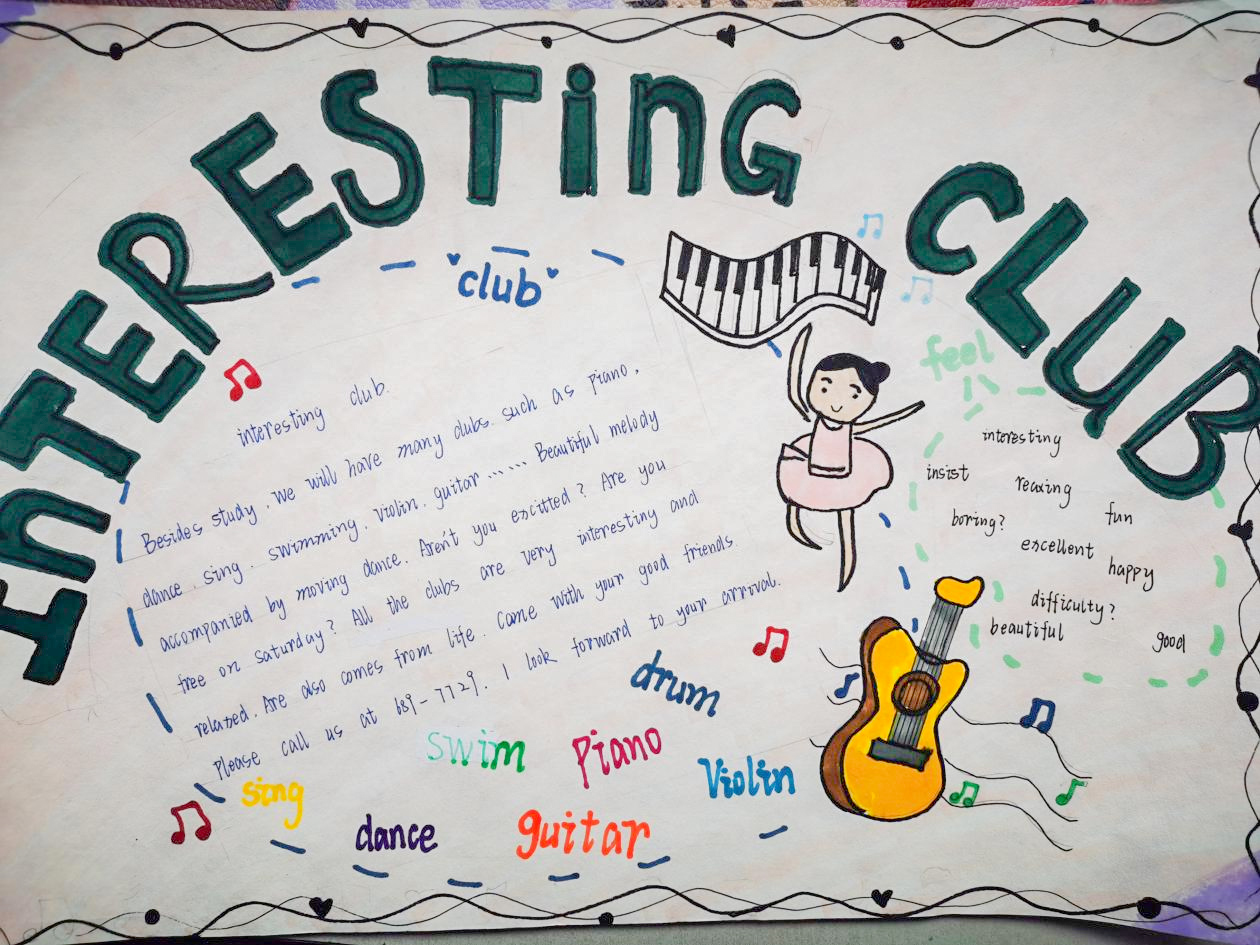 INTERESTinG CLUB
"club"
interesting club.
Besides study, we will have many clubs. such as piano,
dance, sing, swimming, violin, guitar ...... Beautiful melody
accompanied by moving dance. Aren't you excitted? Are you
free on saturday? All the clubs are very interesting and
relaxed. Are also comes from life. came with your good friends.
Please call us at 689-7729. I look forward to your arrival.
drum
swim piano
sing Violin
dance guitar
feel
interesting
insist relaxing
boring? fun
excellent happy
difficulty?
beautiful good